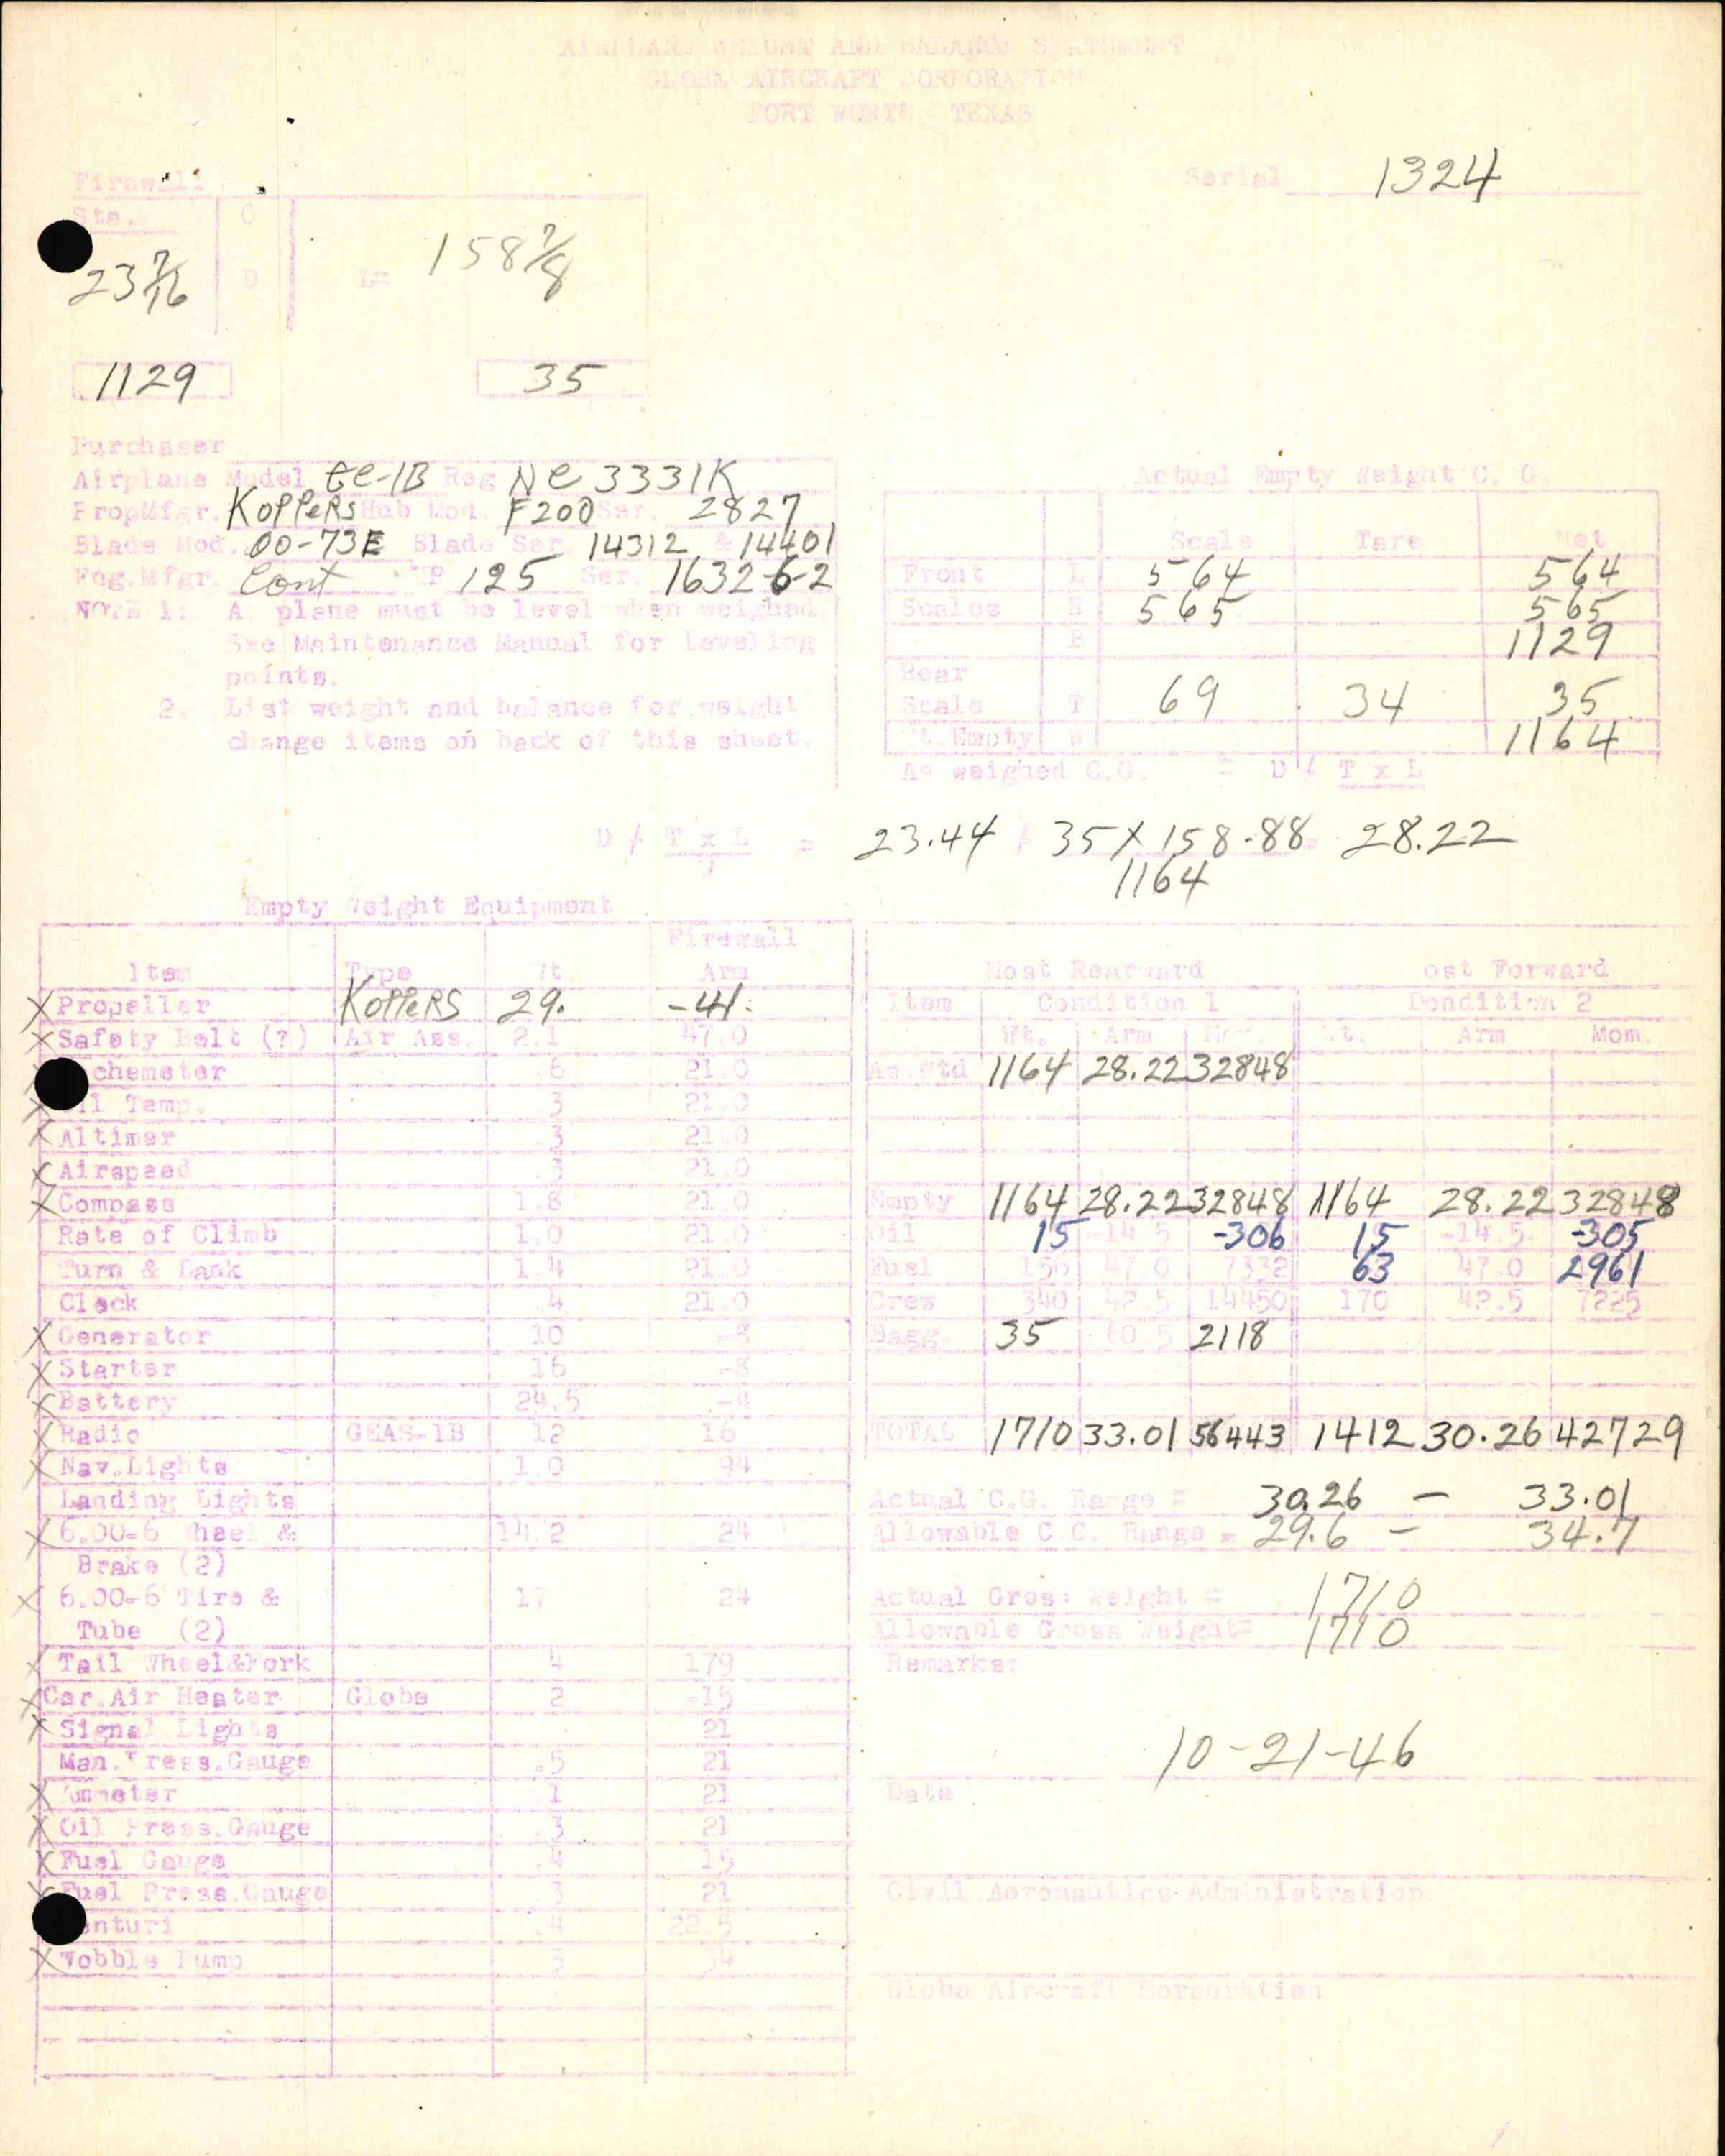 AIRPLANE WEIGHT AND BALANCE STATEMENT
GLOBE AIRCRAFT CORPORATION
FORT WORTH, TEXAS
Serial 1324
Firewall
Sta. O
23 7/16 D L= 158 7/8
1129 35
Purchaser
Airplane Model GC-1B Reg NC 3331K
PropMfgr. KOPPERS Hub Mod. F200 Ser. 2827
Blade Mod. 00-73E Blade Ser. 14312 & 14401
Eng.Mfgr. Cont HP 125 Ser. 1632-6-2
NOTE 1: A plane must be level when weighed.
See Maintenance Manual for leveling
points.
2. List weight and balance for weight
change items on back of this sheet.
Actual Empty Weight C. G.
Scale Tare Net
Front L 564 564
Scales R 565 565
B 1129
Rear
Scale T 69 34 35
Wt.Empty W 1164
As weighed C.G. = D / T x L
D / T x L = 23.44 / 35 X 158.88 = 28.22
W 1164
Empty Weight Equipment
Firewall
Item Type Wt. Arm
X Propeller KOPPERS 29. -41.
X Safety Belt (?) Air Ass. 2.1 47.0
chemeter .6 21.0
X Oil Temp. .3 21.0
X Altimer .3 21.0
X Airspeed .3 21.0
X Compass 1.8 21.0
Rate of Climb 1.0 21.0
Turn & Bank 1.4 21.0
Clock .4 21.0
X Generator 10 -8
X Starter 16 -8
X Battery 24.5 -4
X Radio GEAS-1B 12 16
X Nav.Lights 1.0 94
Landing Lights
X 6.00-6 Wheel & 14.2 24
Brake (2)
X 6.00-6 Tire & 17 24
Tube (2)
X Tail Wheel&Fork 4 179
X Car.Air Heater Globe 2 -15
X Signal Lights 21
Man.Press.Gauge .5 21
X Ammeter .1 21
X Oil Press.Gauge .3 21
X Fuel Gauge .4 15
X Fuel Press.Gauge .3 21
enturi .4 22.5
X Wobble Pump 3 34
Most Rearward ost Forward
Item Condition 1 Condition 2
Wt. Arm Mom. Wt. Arm Mom.
As Wtd 1164 28.22 32848
Empty 1164 28.22 32848 1164 28.22 32848
Oil 15 -14.5 -306 15 -14.5 -305
Fuel 156 47.0 7332 63 47.0 2961
Crew 340 42.5 14450 170 42.5 7225
Bagg. 35 60.5 2118
TOTAL 1710 33.01 56443 1412 30.26 42729
Actual C.G. Range = 30.26 - 33.01
Allowable C.G. Range = 29.6 - 34.7
Actual Gross Weight = 1710
Allowable Gross Weight= 1710
Remarks:
10-21-46
Date
Civil Aeronautics Administration
Globe Aircraft Corporation